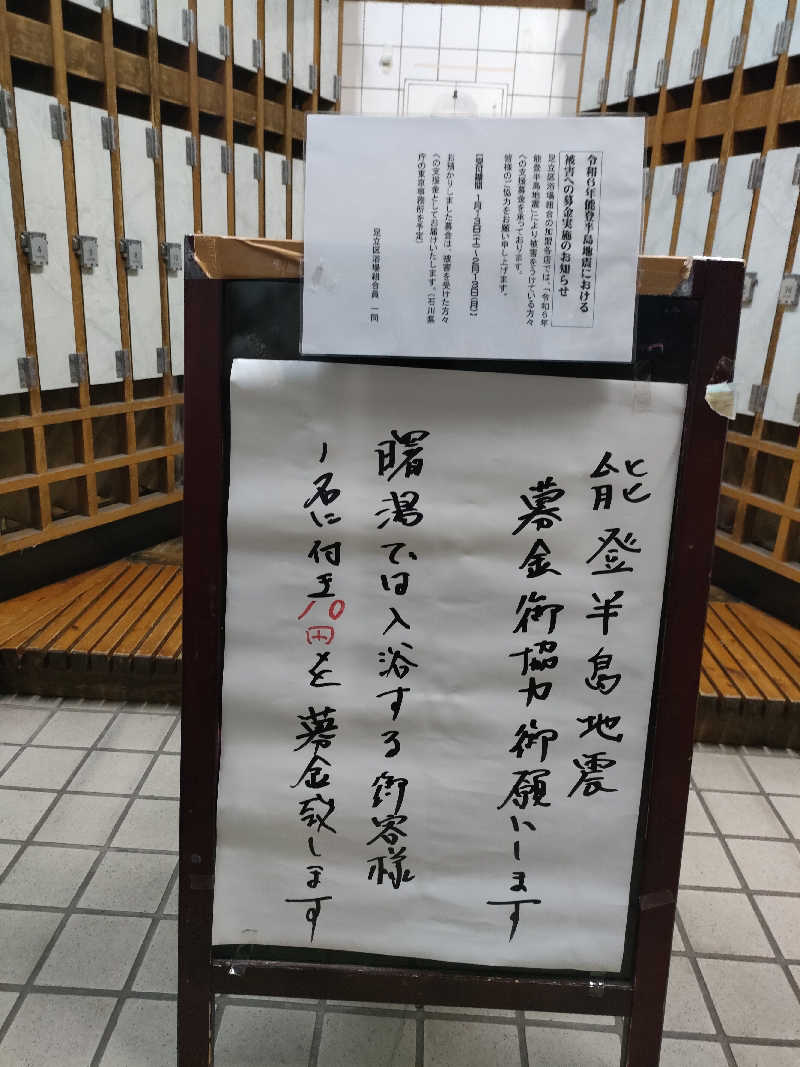 令和６年能登半島地震における
被害への募金実施のお知らせ
足立区浴場組合の加盟各店では、「令和６年
能登半島地震」により被害をうけている方々
への支援募金を承っております。
皆様のご協力をお願い申し上げます。
お預かりしました募金は、被害を受けた方々
への支援金としてお届けいたします。（石川県
庁の東京事務所を予定）
足立区浴場組合員　一同
能登半島地震
募金御協力御願いします
曙湯では入浴する御客様
1名に付き10円を募金致します